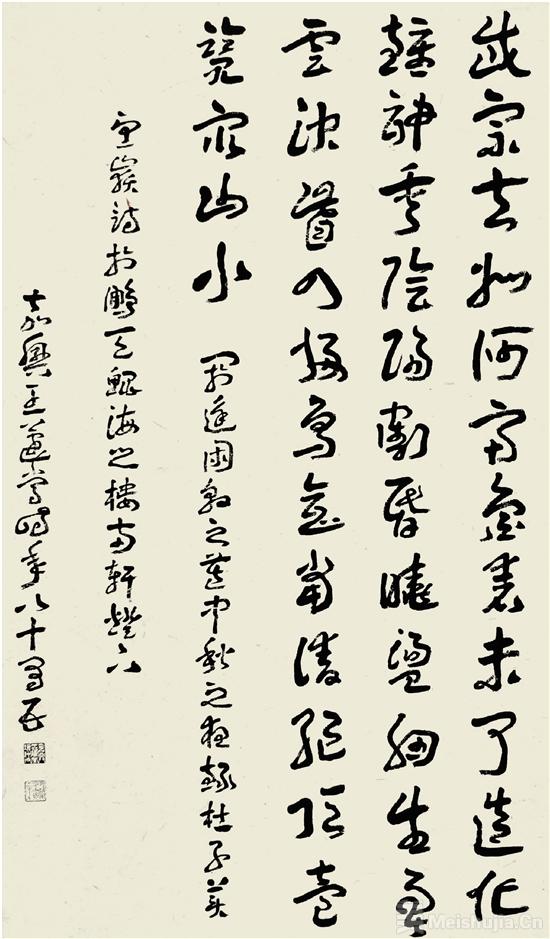 岱宗夫如何齊魯青未了造化
鍾神秀陰陽割昏曉盪胸生層
雲決眥入歸鳥會當凌絕頂壹
覽眾山小 閼逢困敦之歲中秋之夜錄杜子美
望嶽詩於鵬天鯤海之樓南軒燈下
嘉興王蘧常時年八十又五
Meishujia.Cn